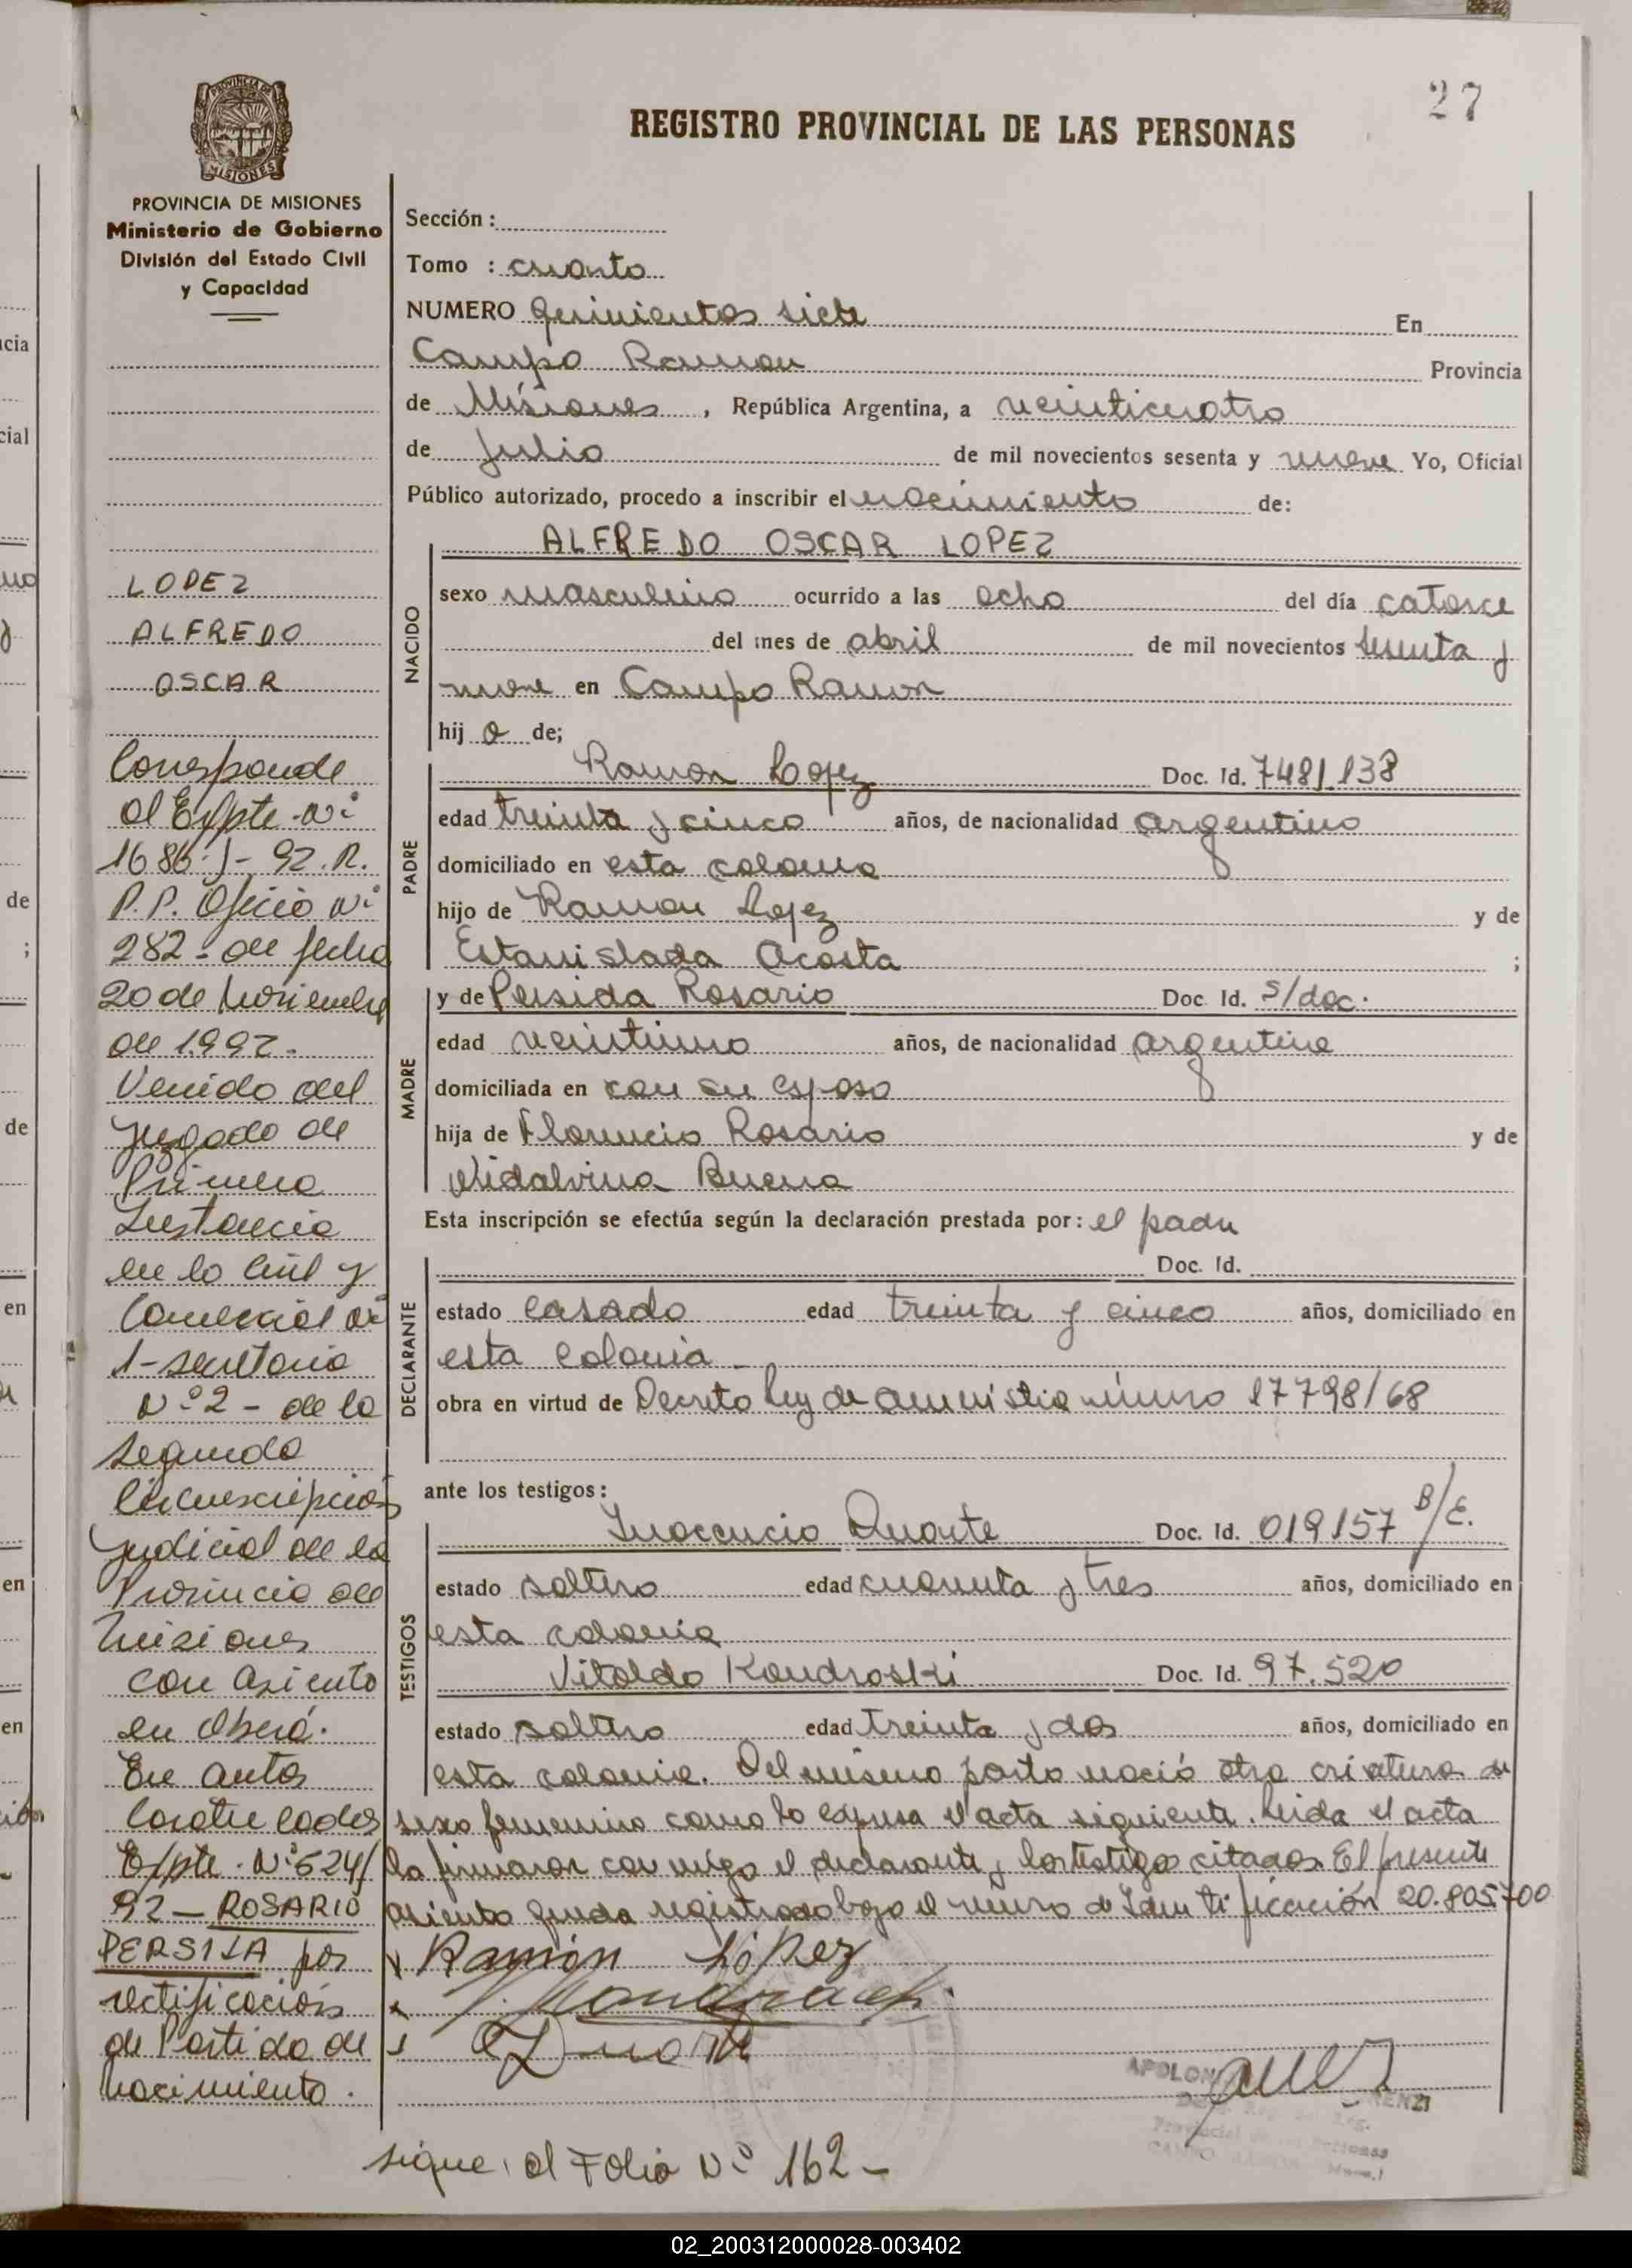 27
REGISTRO PROVINCIAL DE LAS PERSONAS
PROVINCIA DE MISIONES
Ministerio de Gobierno
División del Estado Civil
y Capacidad
LOPEZ
ALFREDO
OSCAR
Corresponde
al Expte. Nº
1686-J-92. R.
P.P. Oficio Nº
282- de fecha
20 de Noviembre
de 1.992.
Venido del
Juzgado de
Primera
Instancia
en lo Civil y
Comercial Nº
1-secretaria
Nº 2 - de la
segunda
Circunscripción
judicial de la
Provincia de
Misiones
con asiento
en Oberá.
En autos
Caratulados
Expte. Nº 624/
92 - ROSARIO
PERSILA por
rectificación
de Partida de
Nacimiento.
Sección:
Tomo : cuarto
NUMERO quinientos siete En
Campo Ramon Provincia
de Misiones, República Argentina, a veinticuatro
de Julio de mil novecientos sesenta y nueve Yo, Oficial
Público autorizado, procedo a inscribir el nacimiento de:
ALFREDO OSCAR LOPEZ
NACIDO
sexo masculino ocurrido a las ocho del día catorce
del mes de abril de mil novecientos sesenta y
nueve en Campo Ramon
hijo de;
PADRE
Ramon Lopez Doc. Id. 7481.138
edad treinta y cinco años, de nacionalidad argentino
domiciliado en esta colonia
hijo de Ramon Lopez y de
Estanislada Acosta ;
MADRE
y de Persida Rosario Doc. Id. s/doc.
edad veintiuno años, de nacionalidad argentina
domiciliada en con su esposo
hija de Florencio Rosario y de
Vidalvina Buena
Esta inscripción se efectúa según la declaración prestada por: el padre
DECLARANTE
Doc. Id.
estado casado edad treinta y cinco años, domiciliado en
esta colonia -
obra en virtud de Decreto Ley de amnistia número 17798/68
ante los testigos:
TESTIGOS
Inoccencio Duarte Doc. Id. 019157 B/E.
estado soltero edad cuarenta y tres años, domiciliado en
esta colonia
Vitoldo Kondroski Doc. Id. 97.520
estado soltero edad treinta y dos años, domiciliado en
esta colonia. Del mismo parto nació otra criatura de
sexo femenino como lo expresa el acta siguiente. Leida el acta
la firmaron conmigo el declarante y los testigos citados El presente
asiento queda registrado bajo el número de Identificación 20.805.700
Ramón López
Duarte
APOLON
RENZI
sigue al Folio Nº 162-
02_200312000028-003402